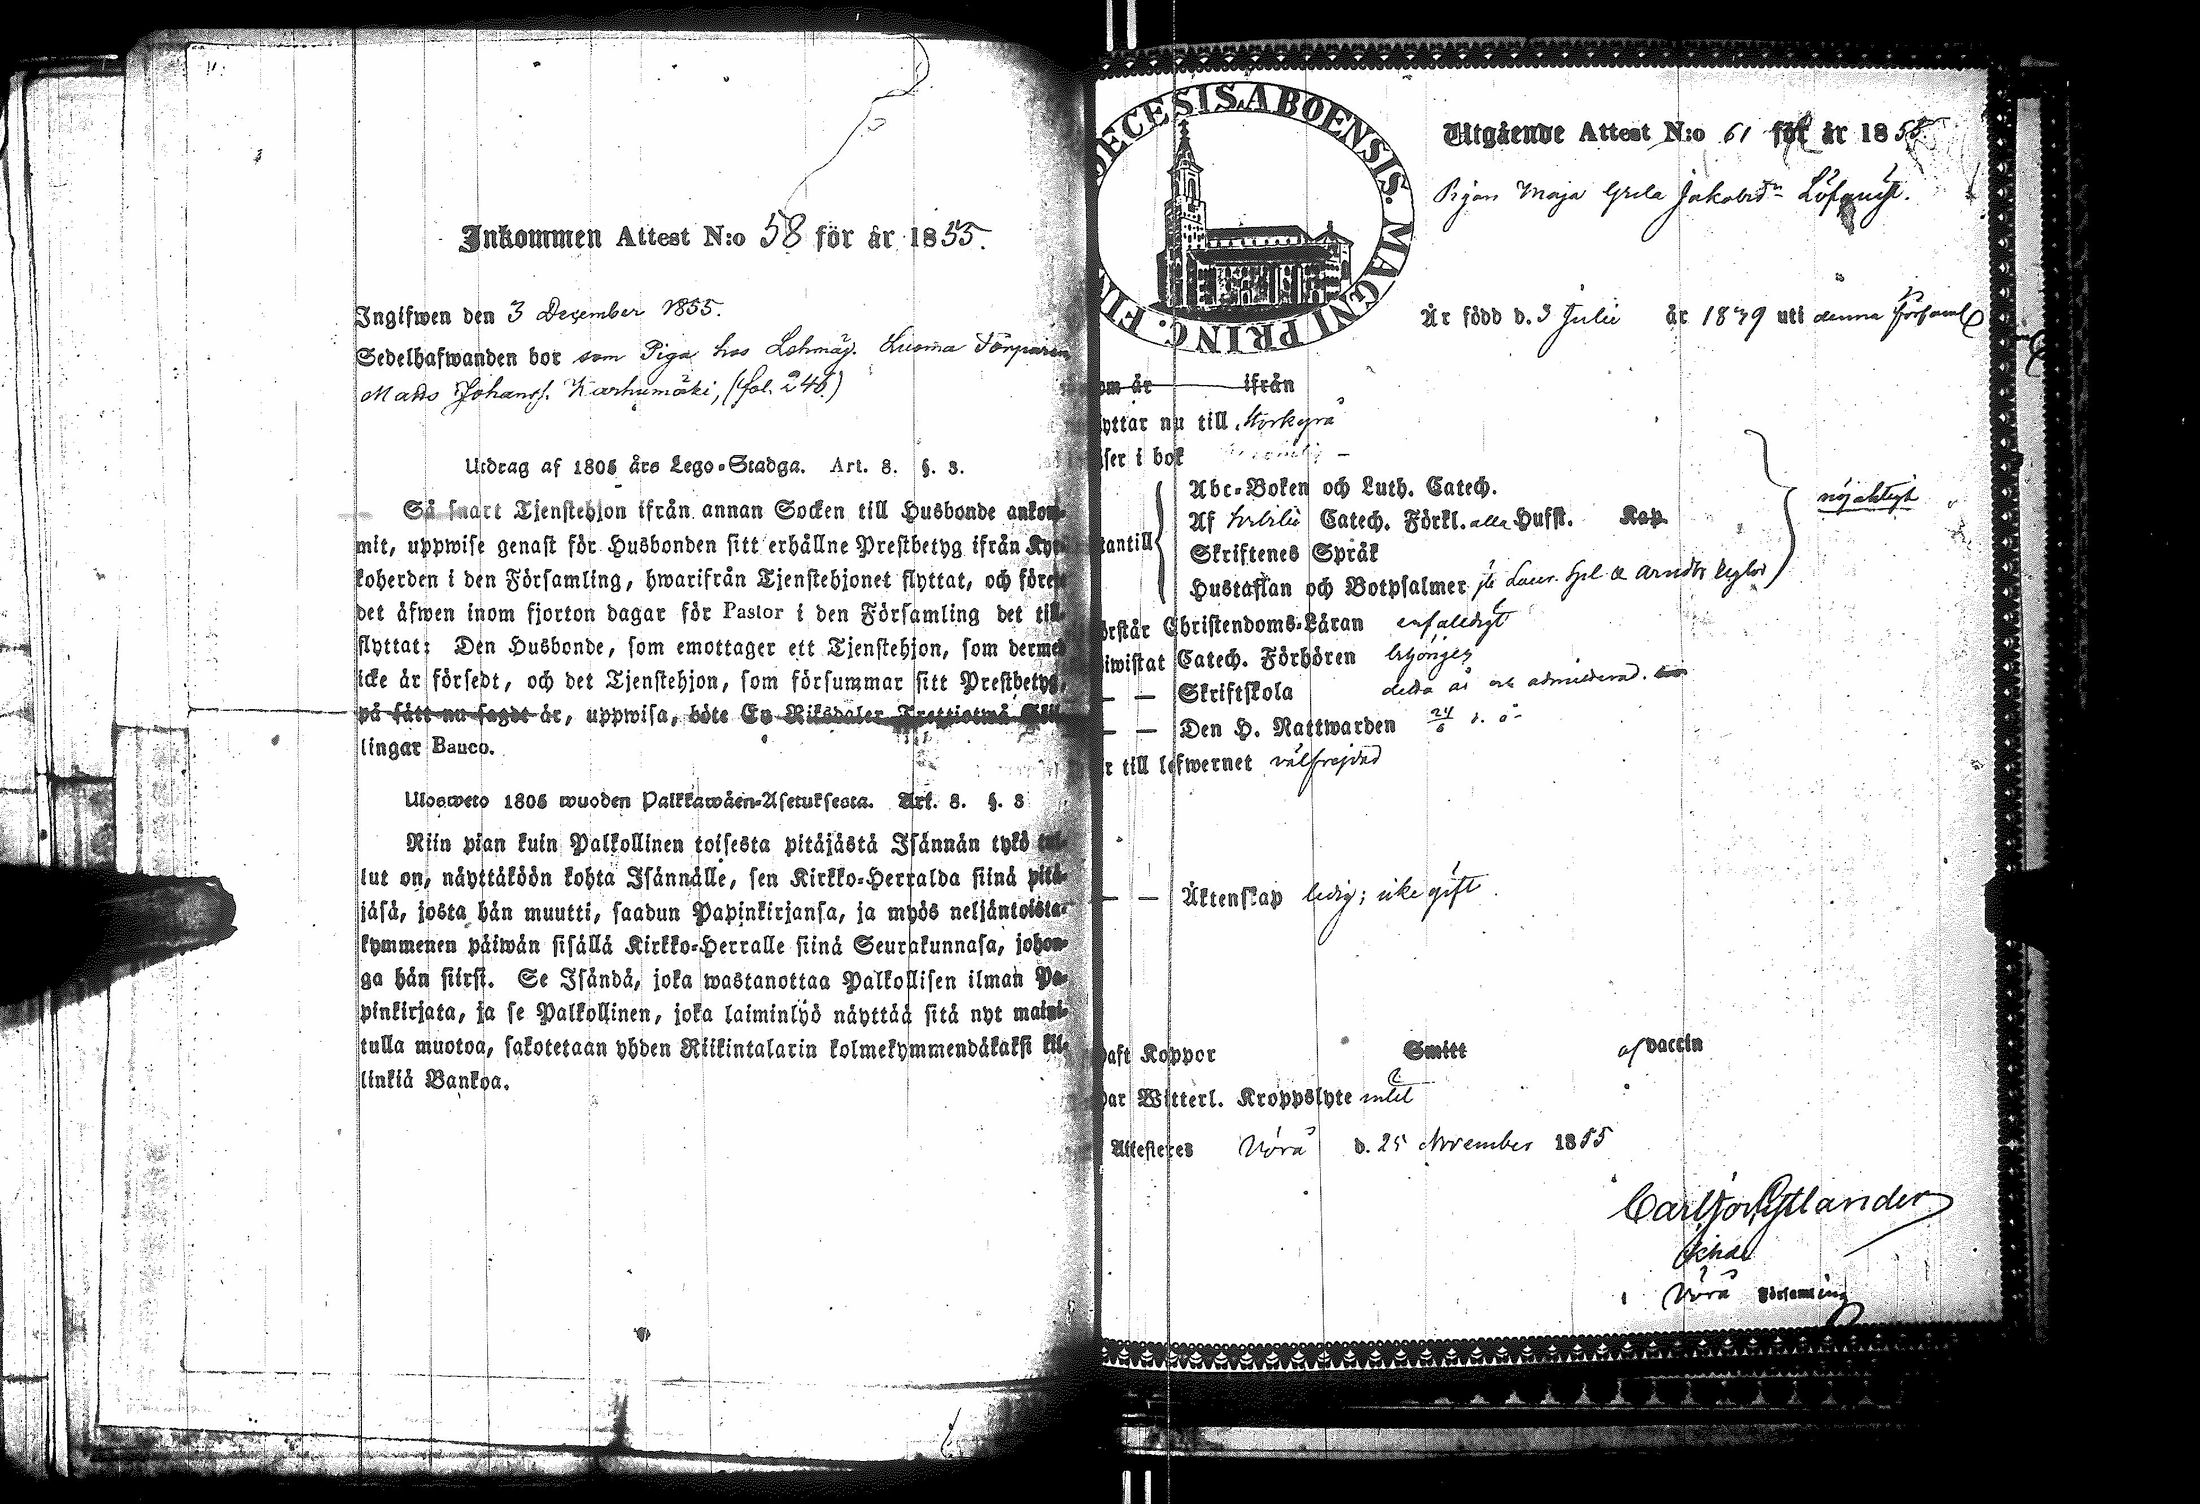 Inkommen Attest N:o 58 för år 1855.
Ingifwen den 3 December 1855.
Sedelhafwanden bor som Piga hos Lehmäj. Luoma Torparen
Matts Johanss. Karhumäki, (fol. 246.)
Utdrag af 1805 års Lego-Stadga. Art. 8. §. 3.
Så snart Tjenstehjon ifrån annan Socken till Husbonde ankom-
mit, uppwise genast för Husbonden sitt erhållne Prestbetyg ifrån Kyr-
koherden i den Församling, hwarifrån Tjenstehjonet flyttat, och förete
det äfwen inom fjorton dagar för Pastor i den Församling det till-
flyttat: Den Husbonde, som emottager ett Tjenstehjon, som dermed
icke är försedt, och det Tjenstehjon, som försummar sitt Prestbetyg,
på sätt nu sagdt är, uppwisa, böte En Riksdaler Trettiotwå Skil-
lingar Banco.
Ulosweto 1805 wuoden Palkkawäen-Asetuksesta. Art. 8. §. 3
Niin pian kuin Palkollinen toisesta pitäjästä Isännän tykö tul-
lut on, näyttäköön kohta Isännälle, sen Kirkko-Herralda siinä pitä-
jäsä, josta hän muutti, saadun Papinkirjansa, ja myös neljäntoista-
kymmenen päiwän sisällä Kirkko-Herralle siinä Seurakunnasa, johon-
ga hän siirsi. Se Isändä, joka wastanottaa Palkollisen ilman Pa-
pinkirjata, ja se Palkollinen, joka laiminlyö näyttää sitä nyt maini-
tulla muotoa, sakotetaan yhden Riikintalarin kolmekymmendäkaksi kil-
linkiä Bankoa.
DECESIS ABOENSIS. MAGNI PRINC. FIN
Utgående Attest N:o 61 för år 1855
Pigan Maja Greta Jakobsdr Löfqvist.
Är född d. 3 Julii år 1839 uti denna församl
om år ifrån
yttar nu till Storkyrå
ser i bok
Abc-Boken och Luth. Catech.
Af Svebilii Catech. Förkl. alla Hufst. Kap.
nöjaktigt
antill Skriftenes Språk
Hustaflan och Botpsalmer
örstår Christendoms-Läran enfaldigt
iwistat Catech. Förhören
— — Skriftskola detta år och admitterad.
— — Den H. Nattwarden 24/6 d. å
r till lefwernet välfrejdad
— — Äktenskap ledig; icke gift.
aft Koppor Smitt af vaccin
ar Witterl. Kroppslyte intet
Attesteres Vörå d. 25 November 1855
Vörå Församling